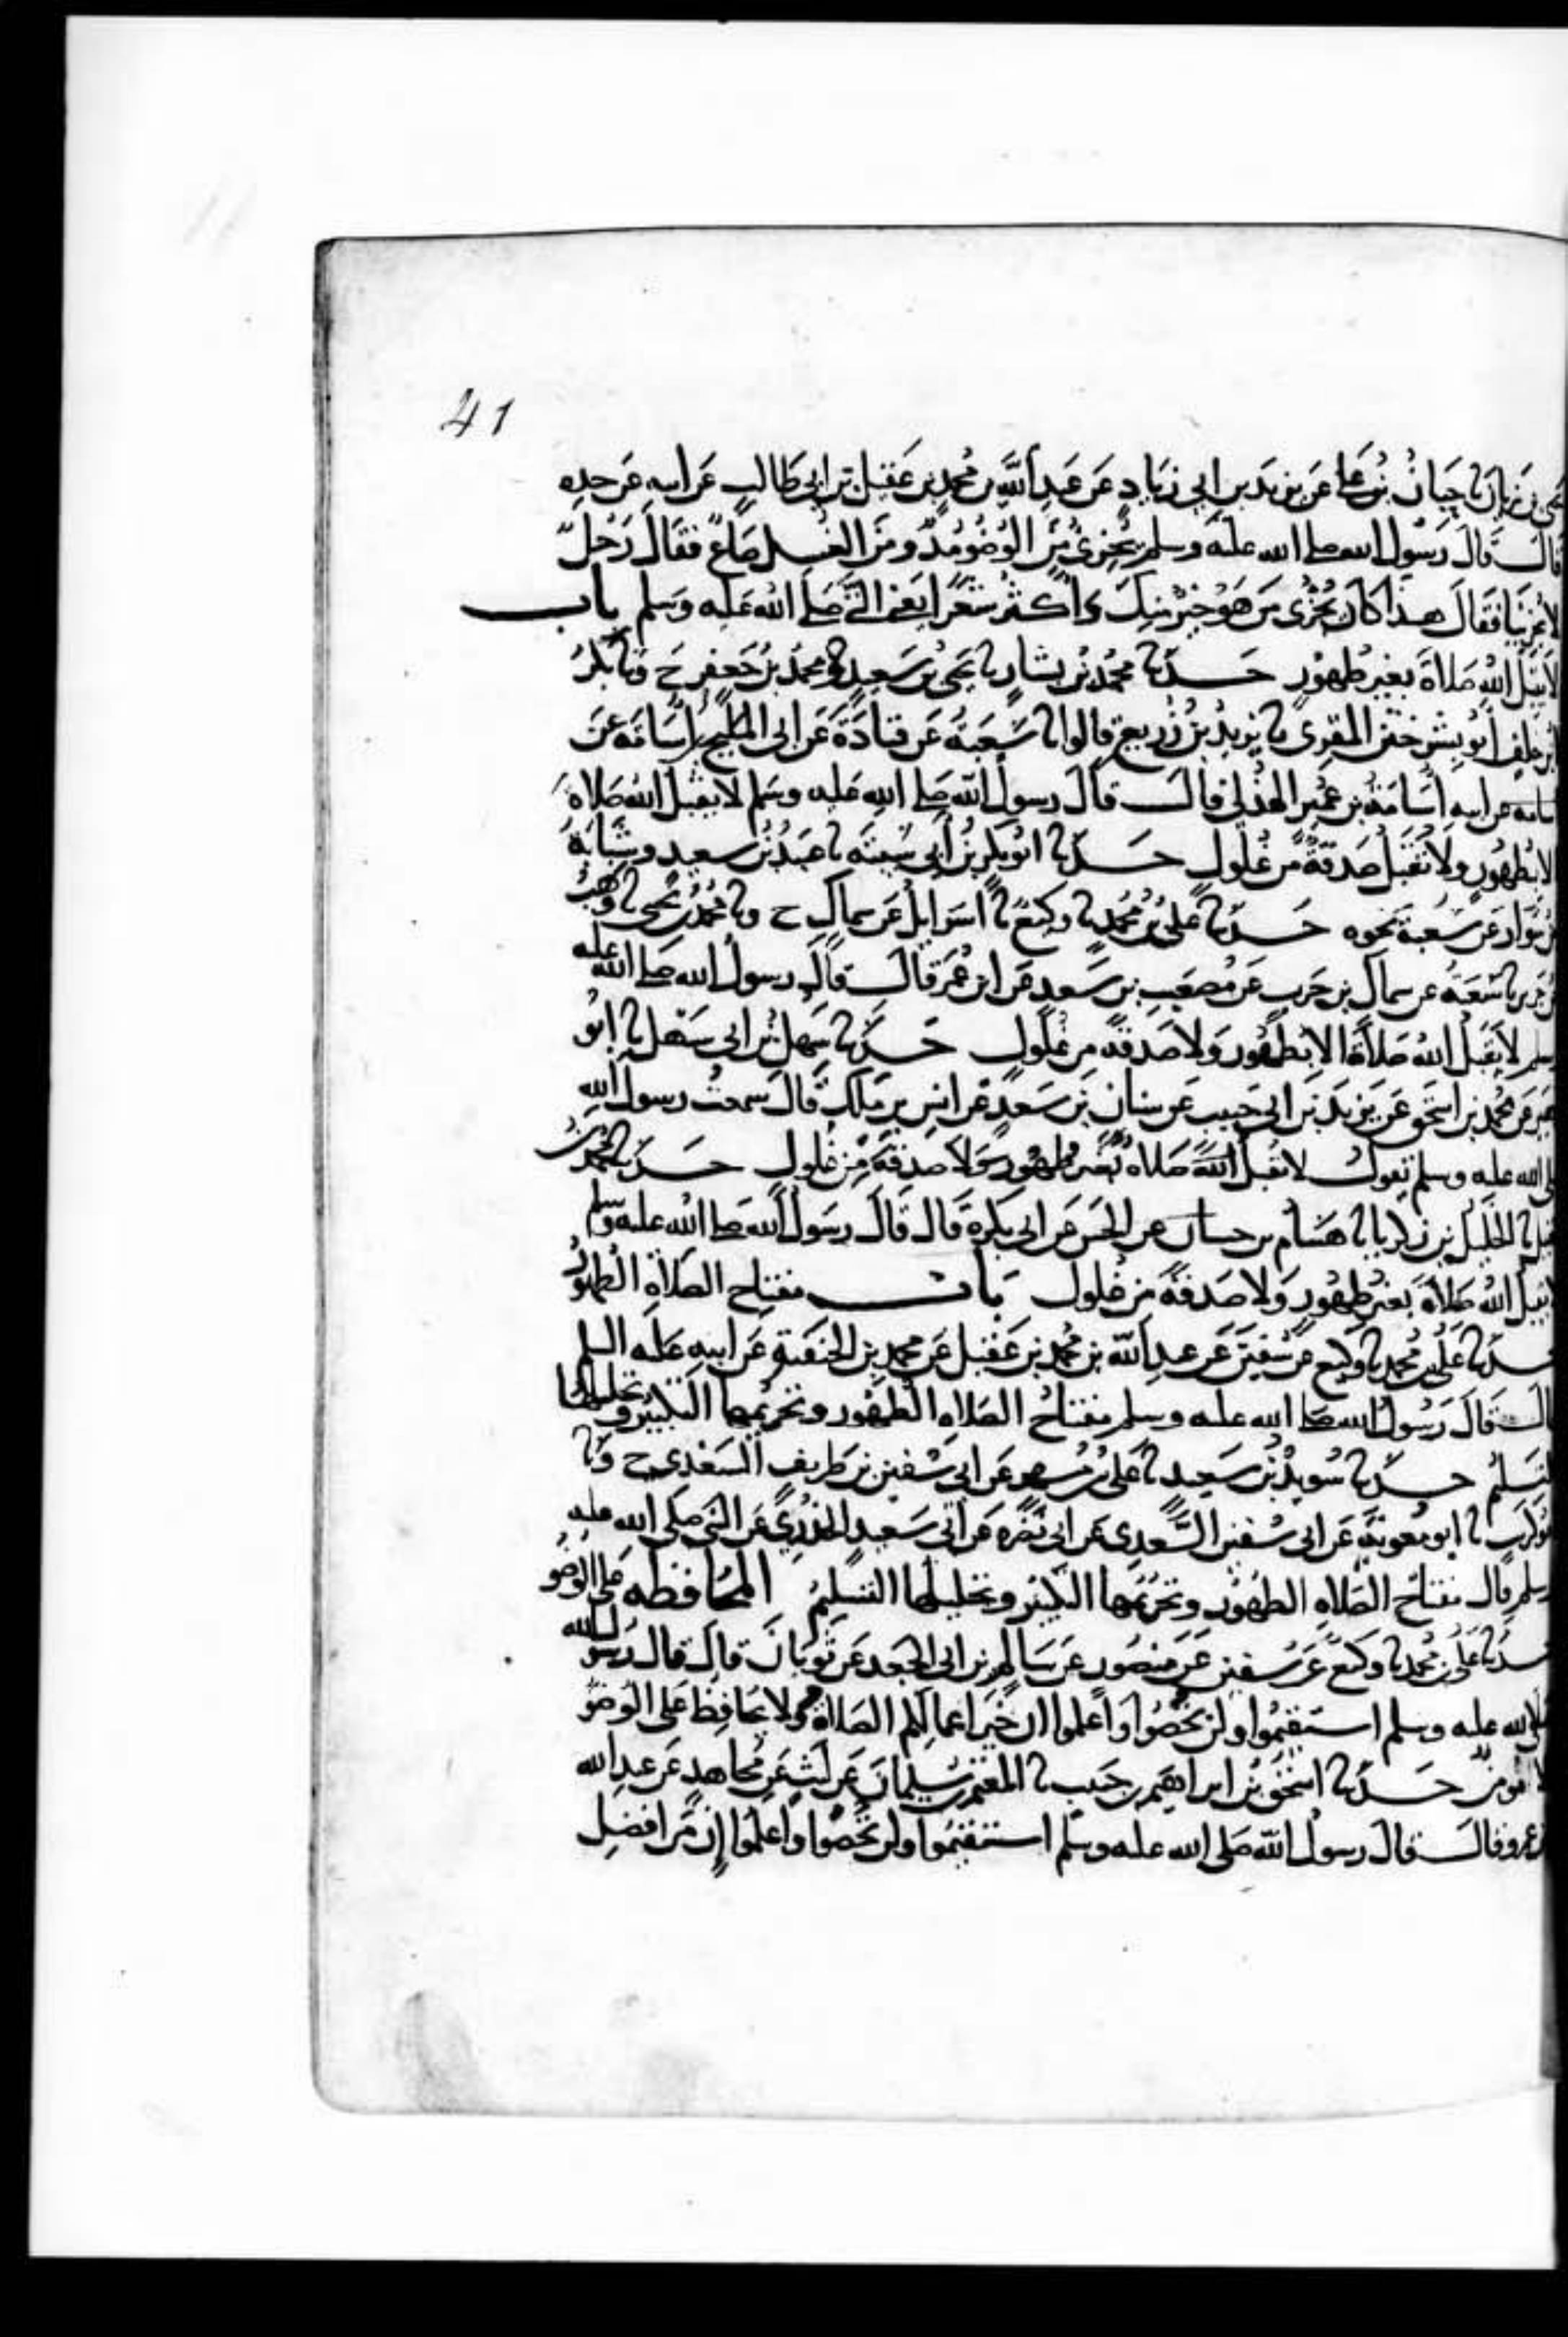 41
يحيى بن زبان نا حبان بن علي عن يزيد بن ابي زياد عن عبد الله بن محمد بن عقيل بن ابي طالب عن ابيه عن جده
قال قال رسول الله صلى الله عليه وسلم يجزئ من الوضو مد ومن الغسل صاع فقال رجل
لا يجزينا فقال هذا كان يجزئ من هو خير منك واكثر شعرا يعني النبي صلى الله عليه وسلم باب
لا يقبل الله صلاة بغير طهور حدثنا محمد بن بشار نا يحيى بن سعيد ومحمد بن جعفر ح ونا بكر
بن خلف ابو بشر ختن المقرئ نا يزيد بن زريع قالوا نا شعبة عن قتادة عن ابي المليح بن اسامة عن
اسامة عن ابيه اسامة بن عمير الهذلي قال قال رسول الله صلى الله عليه وسلم لا يقبل الله صلاة
الا بطهور ولا تقبل صدقة من غلول حدثنا ابو بكر بن ابي شيبة نا عبيد بن سعيد وشبابة
بن سوار عن شعبة نحوه حدثنا علي بن محمد نا وكيع نا اسرايل عن سماك ح ونا محمد بن يحيى نا وهب
بن جرير نا شعبة عن سماك بن حرب عن مصعب بن سعد عن ابن عمر قال قال رسول الله صلى الله عليه
وسلم لا يقبل الله صلاة الا بطهور ولا صدقة من غلول حدثنا سهل بن ابي سهل نا ابو
زهير عن محمد بن اسحق عن يزيد بن ابي حبيب عن سنان بن سعد عن انس بن ملك قال سمعت رسول الله
صلى الله عليه وسلم يقول لا يقبل الله صلاة بغير طهور ولا صدقة من غلول حدثنا محمد بن
عقيل نا الخليل بن زكريا نا هشام بن حسان عن الحسن عن ابي بكرة قال قال رسول الله صلى الله عليه وسلم
لا يقبل الله صلاة بغير طهور ولا صدقة من غلول باب مفتاح الصلاة الطهور
حدثنا علي بن محمد نا وكيع عن سفين عن عبد الله بن محمد بن عقيل عن محمد بن الحنفية عن ابيه عليه السلم
قال قال رسول الله صلى الله عليه وسلم مفتاح الصلاه الطهور وتحريمها التكبير وتحليلها
التسليم حدثنا سويد بن سعيد نا علي بن مسهر عن ابي سفين بن طريف السعدي ح ونا
ابو كريب نا ابو معوية عن ابي سفين السعدي عن ابي نضره عن ابي سعيد الخدري عن النبي صلى الله عليه
وسلم قال مفتاح الصلاه الطهور وتحريمها التكبير وتحليلها التسليم المحافظه على الوضو
حدثنا علي بن محمد نا وكيع عن سفين عن منصور عن سالم بن ابي الجعد عن ثوبان قال قال رسول الله
صلى الله عليه وسلم استقيموا ولن تحصوا واعلموا ان خير اعمالكم الصلاة ولا يحافظ على الوضو
الا مومن حدثنا اسحق بن ابراهيم بن حبيب نا المعتمر بن سليمان عن ليث عن مجاهد عن عبد الله
بن عمرو قال قال رسول الله صلى الله عليه وسلم استقيموا ولن تحصوا واعلموا ان من افضل